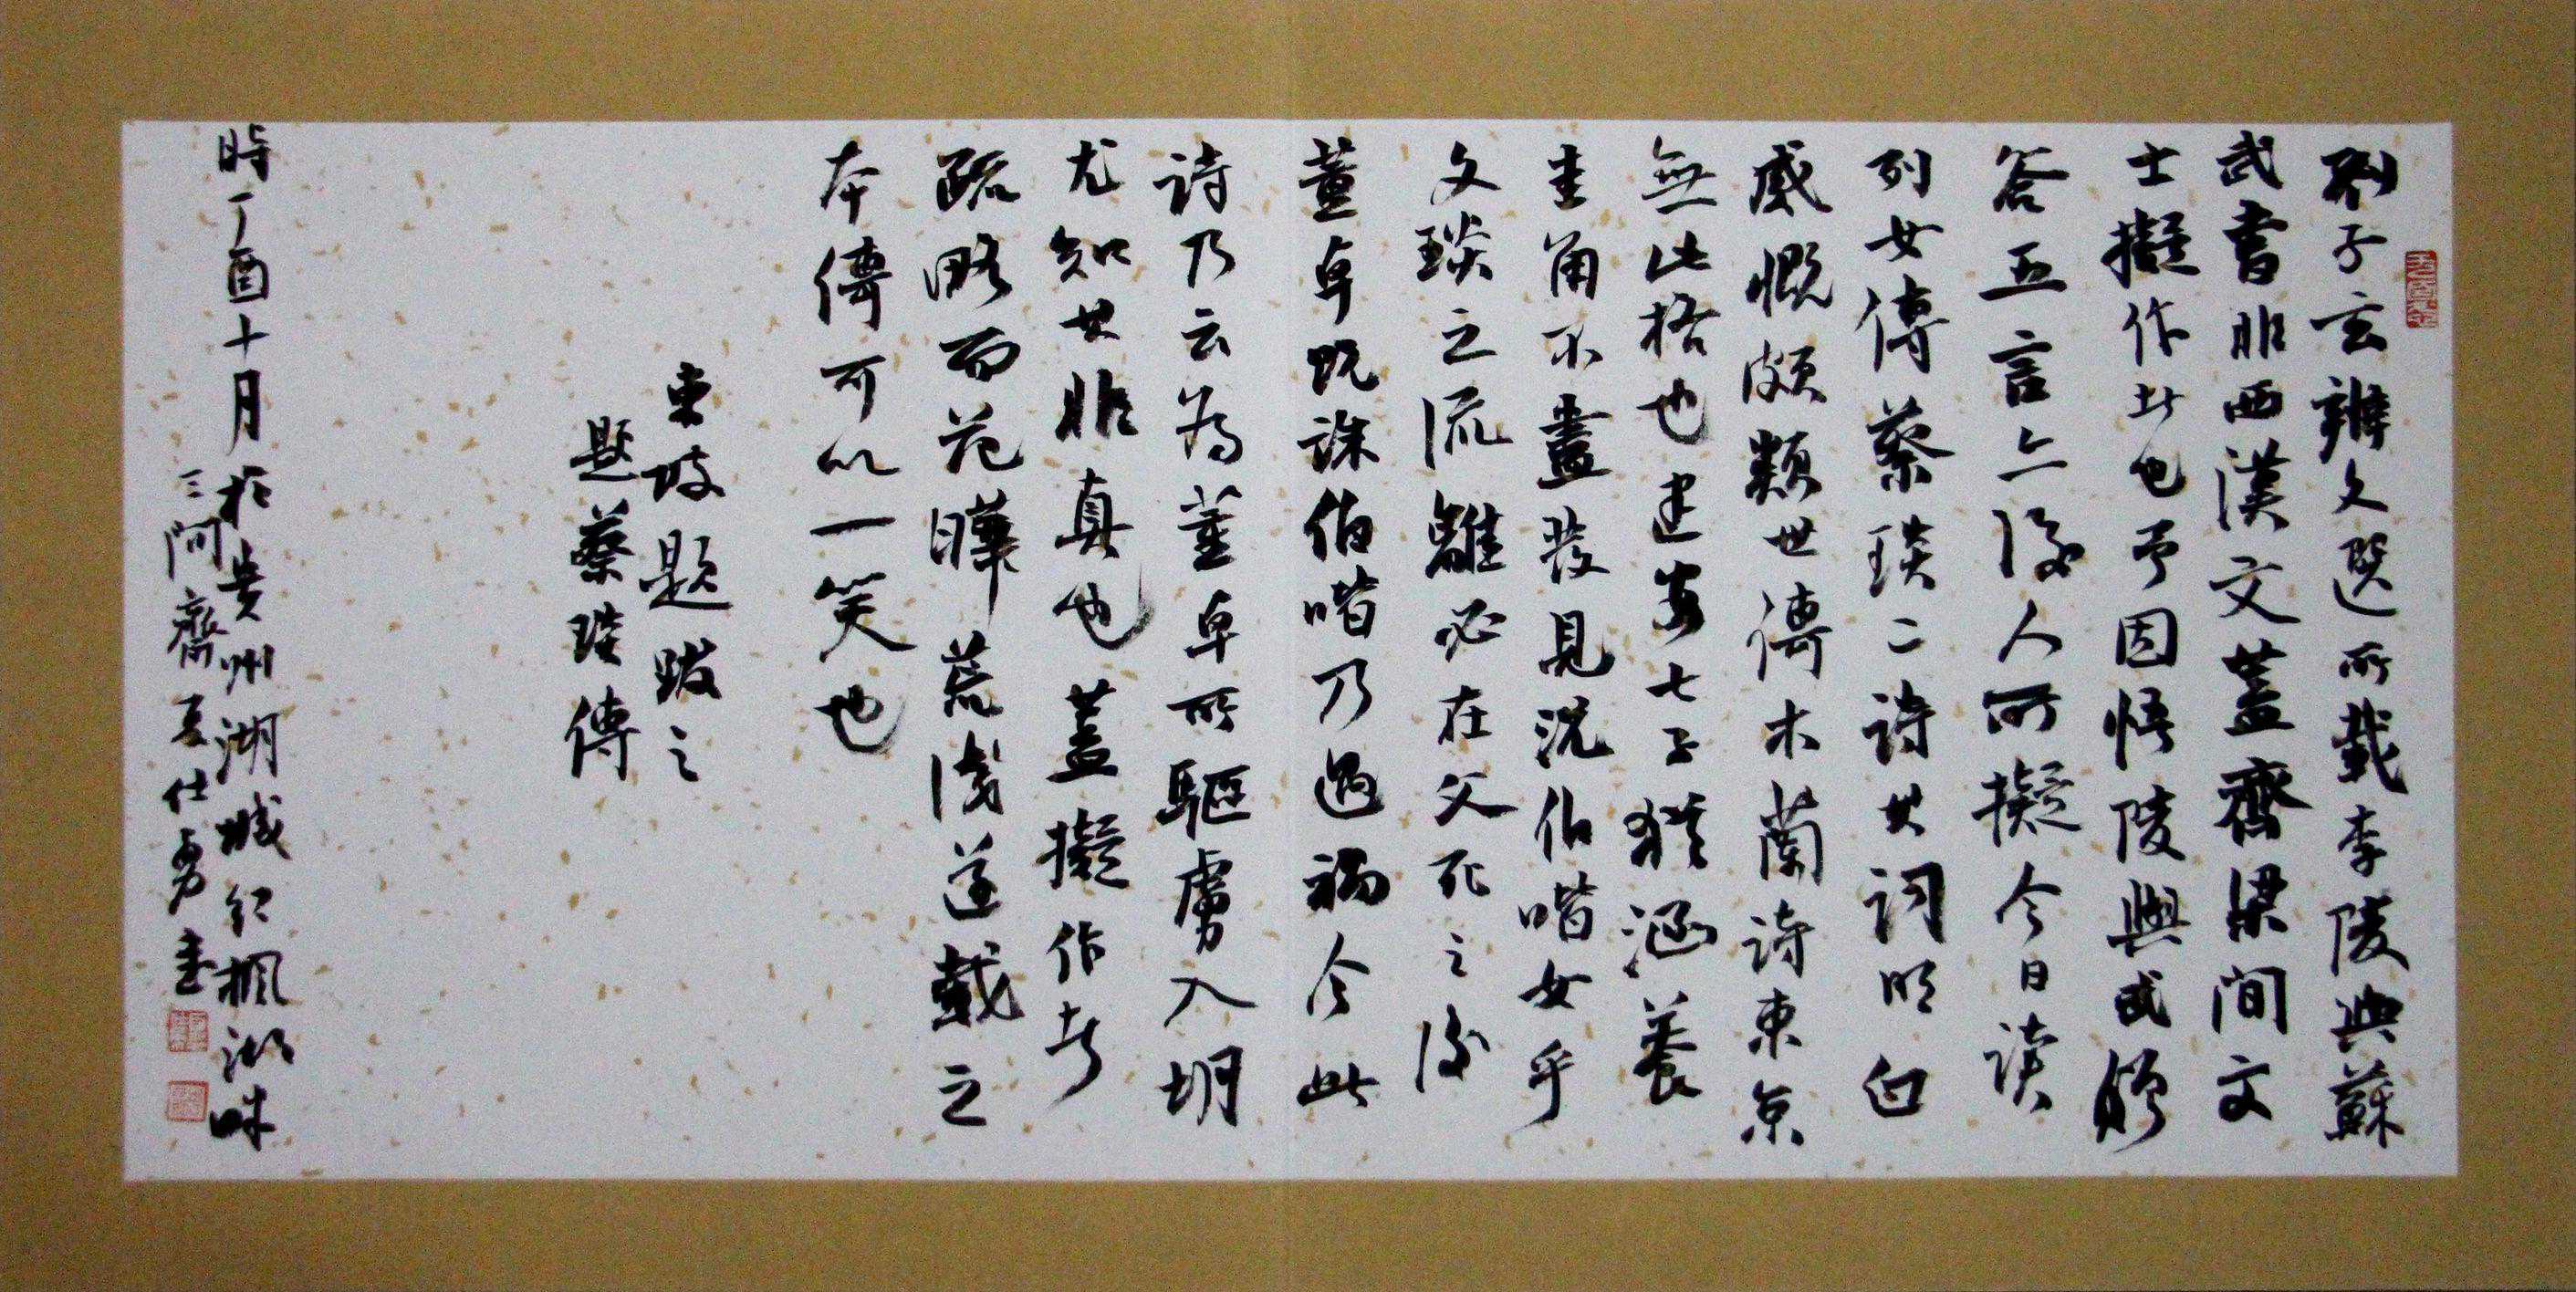 劉子玄辨文選所載李陵與蘇
武書非西漢文蓋齊梁間文
士擬作者也予因悟陵與武贈
答五言亦後人所擬今日讀
列女傳蔡琰二詩其詞明白
感慨頗類世傳木蘭詩東京
無此格也建安七子猶涵養
圭角不盡發見況伯喈女乎
又琰之流離必在父死之後
董卓既誅伯喈乃遇禍今此
詩乃云為董卓所驅虜入胡
尤知其非真也蓋擬作者
疏略而范曄荒淺遂載之
本傳可以一笑也
東坡題跋之
題蔡琰傳
時丁酉十月於貴州湖城紅楓湖畔
三問齋夏仕勇書